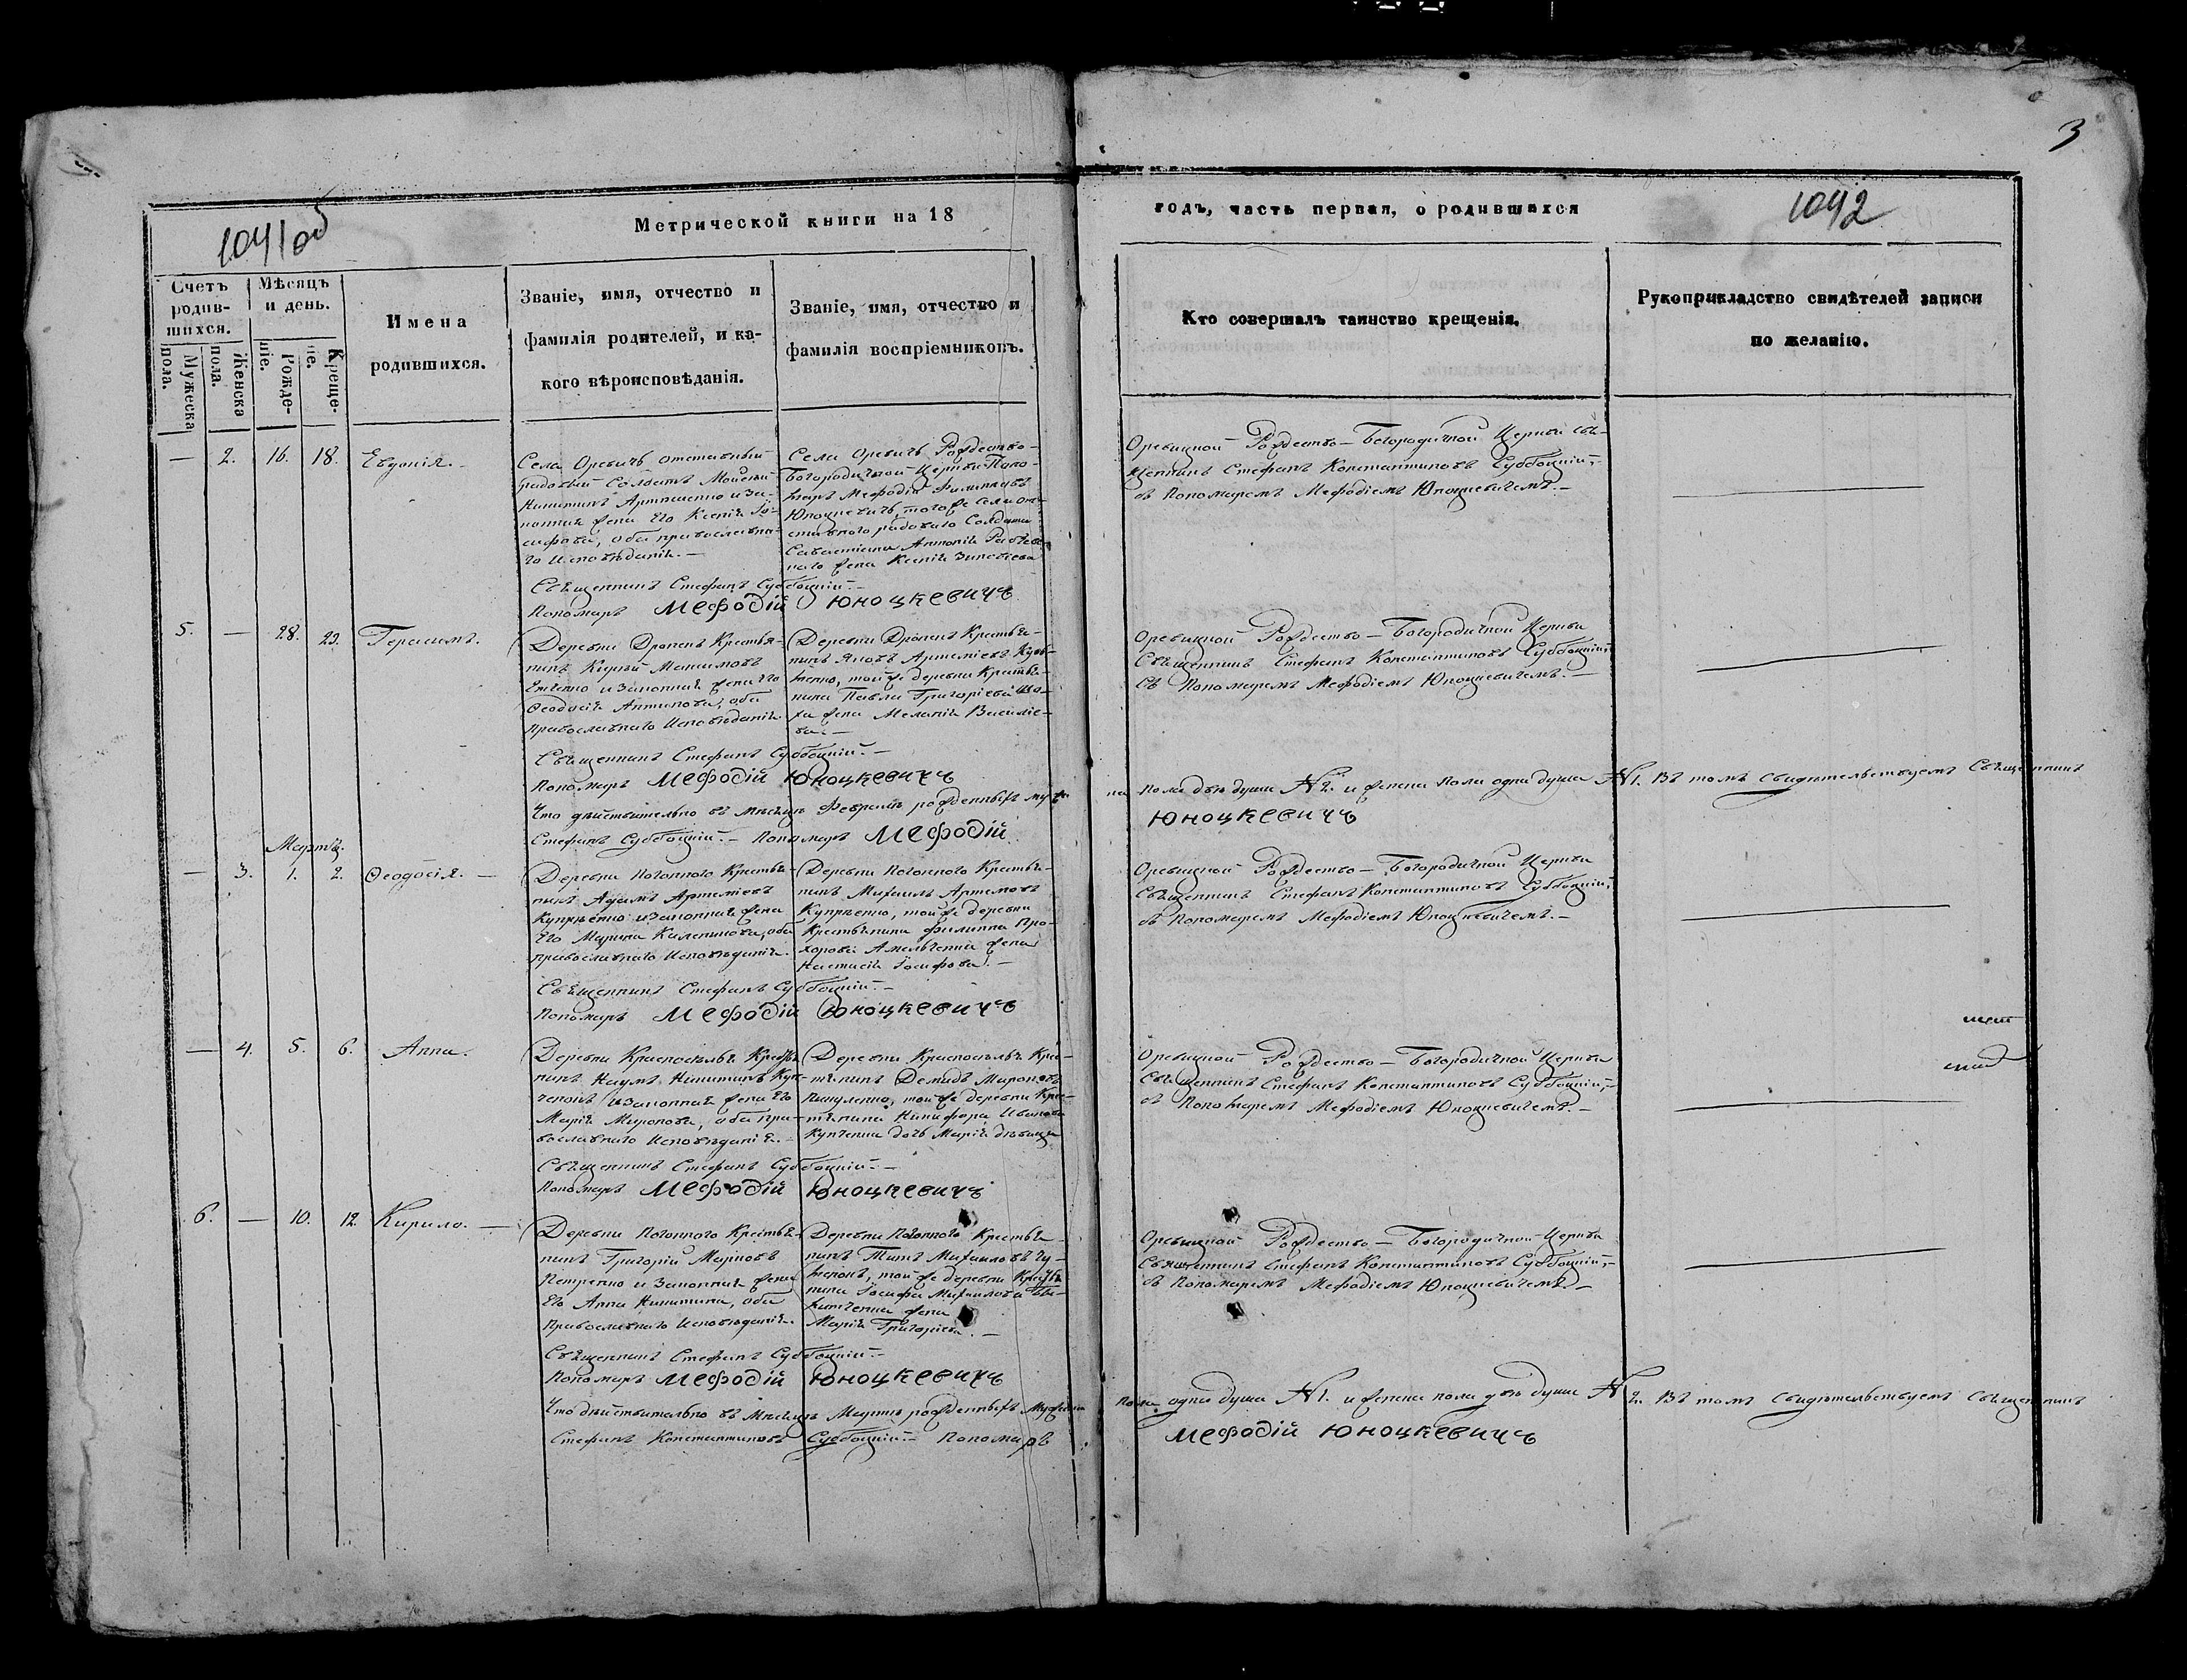 3
1041об
Метрической книги на 18
годъ, часть первая, о родившихся
1042
Счетъ родив-шихся.
Мѣсяцъ и день.
Имена
родившихся.
Званіе, имя, отчество и
фамилія родителей, и ка-
кого вѣроисповѣданія.
Званіе, имя, отчество и
фамилія воспріемниковъ.
Кто совершалъ таинство крещенія.
Рукоприкладство свидѣтелей записи
по желанію.
Мужеска пола.
Женска пола.
Рожде-ніе.
Креще-ніе.
— 2. 16. 18. Евдокія.
Села Оревичъ отставный
рядовый Солдатъ Мойсей
Никитинъ Артюшенко и за-
конная жена Его Ксенія Іо-
сифова, оба православна-
го Исповѣданія.—
Села Оревичъ Рождество-
Богородичной Церкви Поно-
марь Мефодій Филиповъ
Юноцкевичъ, того же села от-
ставного рядового Солдата
Савастіана Антонія
жена Ксенія
Оревицкой Рождество-Богородичной Церкви Свя-
щенникъ Стефанъ Константиновъ Субботскій,
съ Пономаремъ Мефодіемъ Юноцкевичемъ.—
Священникъ Стефанъ Субботскій.—
Пономарь Мефодій Юноцкевичъ
5. — 28. 29. Герасимъ.
Деревни Дронекъ Крестья-
нинъ Кирѣй Максимовъ
и законная жена Его
Феодосія Антипова, оба
православнаго Исповѣданія.
Деревни Дронекъ Крестья-
нинъ Яковъ Артеміевъ
той же деревни Крестья-
нина Павла Григоріева
жена Меланія Василіе-
ва.—
Оревицкой Рождество-Богородичной Церкви
Священникъ Стефанъ Константиновъ Субботскій,
съ Пономаремъ Мефодіемъ Юноцкевичемъ.—
Священникъ Стефанъ Субботскій.—
Пономарь Мефодій Юноцкевичъ
Что дѣйствительно въ Мѣсяцѣ Февралѣ рожденныхъ муже-
ска пола двѣ души №2. и женска пола одна душа №1. Въ томъ свидѣтельствуемъ Священникъ
Стефанъ Субботскій.— Пономарь Мефодій
Юноцкевичъ
Мартъ.
— 3. 1. 2. Феодосія.—
Деревни Погонного Крестья-
нинъ Адамъ Артеміевъ
Купрѣенко и законная жена
Его Марина Каленикова, оба
православнаго Исповѣданія.
Деревни Погонного Крестья-
нинъ Михаилъ Артемовъ
Купрѣенко, той же деревни
Крестьянина Филиппа Про-
хорова Амельченка жена
Настасія Іосифова.—
Оревицкой Рождество-Богородичной Церкви
Священникъ Стефанъ Константиновъ Субботскій,
съ Пономаремъ Мефодіемъ Юноцкевичемъ.—
Священникъ Стефанъ Субботскій.—
Пономарь Мефодій Юноцкевичъ
— 4. 5. 6. Анна.
Деревни Красноселья Крестья-
нинъ Наумъ Никитинъ Куп-
ченокъ и законная жена Его
Марія Миронова, оба пра-
вославнаго Исповѣданія.—
Деревни Красноселья Крес-
тьянинъ Демидъ Мироновъ
той же деревни Крес-
тьянина Никифора Иванова
Купченка дочь Марія дѣвица
Оревицкой Рождество-Богородичной Церкви
Священникъ Стефанъ Константиновъ Субботскій,
съ Пономаремъ Мефодіемъ Юноцкевичемъ.—
Священникъ Стефанъ Субботскій.—
Пономарь Мефодій Юноцкевичъ
6. — 10. 12. Кирило.—
Деревни Погонного Крестья-
нинъ Григорій Марковъ
Петренко и законная жена
Его Анна Никитина, оба
православнаго Исповѣданія.
Деревни Погонного Крестья-
нинъ Титъ Михаиловъ
той же деревни Крестья-
нина Іосифа Михаилова
жена
Марія Григоріева.—
Оревицкой Рождество-Богородичной Церкви
Священникъ Стефанъ Константиновъ Субботскій,
съ Пономаремъ Мефодіемъ Юноцкевичемъ.—
Священникъ Стефанъ Субботскій.—
Пономарь Мефодій Юноцкевичъ
Что дѣйствительно въ Мѣсяцѣ Мартѣ рожденныхъ мужеска
пола одна душа №1. и женска пола двѣ души №2. Въ томъ свидѣтельствуемъ Священникъ
Стефанъ Константиновъ Субботскій.— Пономарь
Мефодій Юноцкевичъ